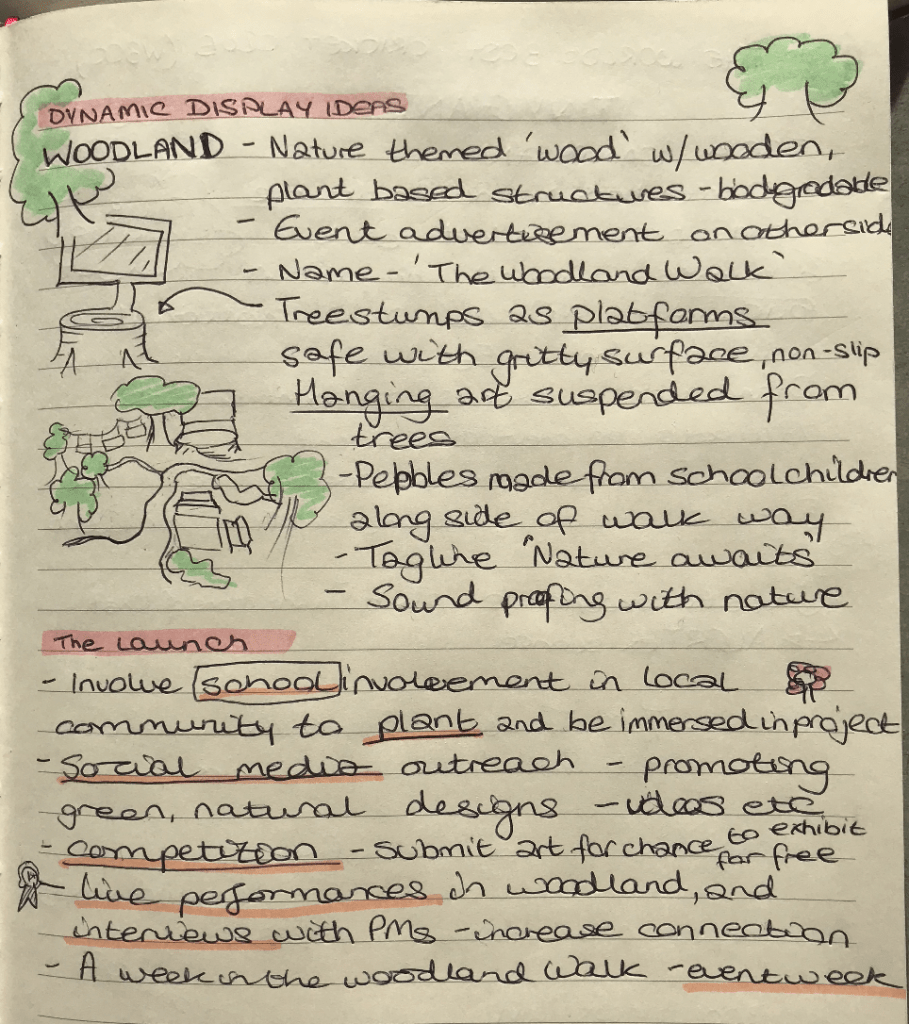 DYNAMIC DISPLAY IDEAS
WOODLAND - Nature themed 'wood' w/wooden,
plant based structures - biodegradable
- Event advertisement on other side
- Name - 'The Woodland Walk'
Treestumps as platforms
safe with gritty surface, non-slip
Hanging art suspended from
trees
- Pebbles made from schoolchildren
along side of walk way
- Tagline 'Nature awaits'
- Sound proofing with nature
The Launch
- Involve school involvement in local
community to plant and be immersed in project
- Social media outreach - promoting
green, natural designs - ideas etc
- competition - submit art for chance to exhibit
for free
- Live performances in woodland, and
interviews with PMs - increase connection
- A week in the woodland walk - event week